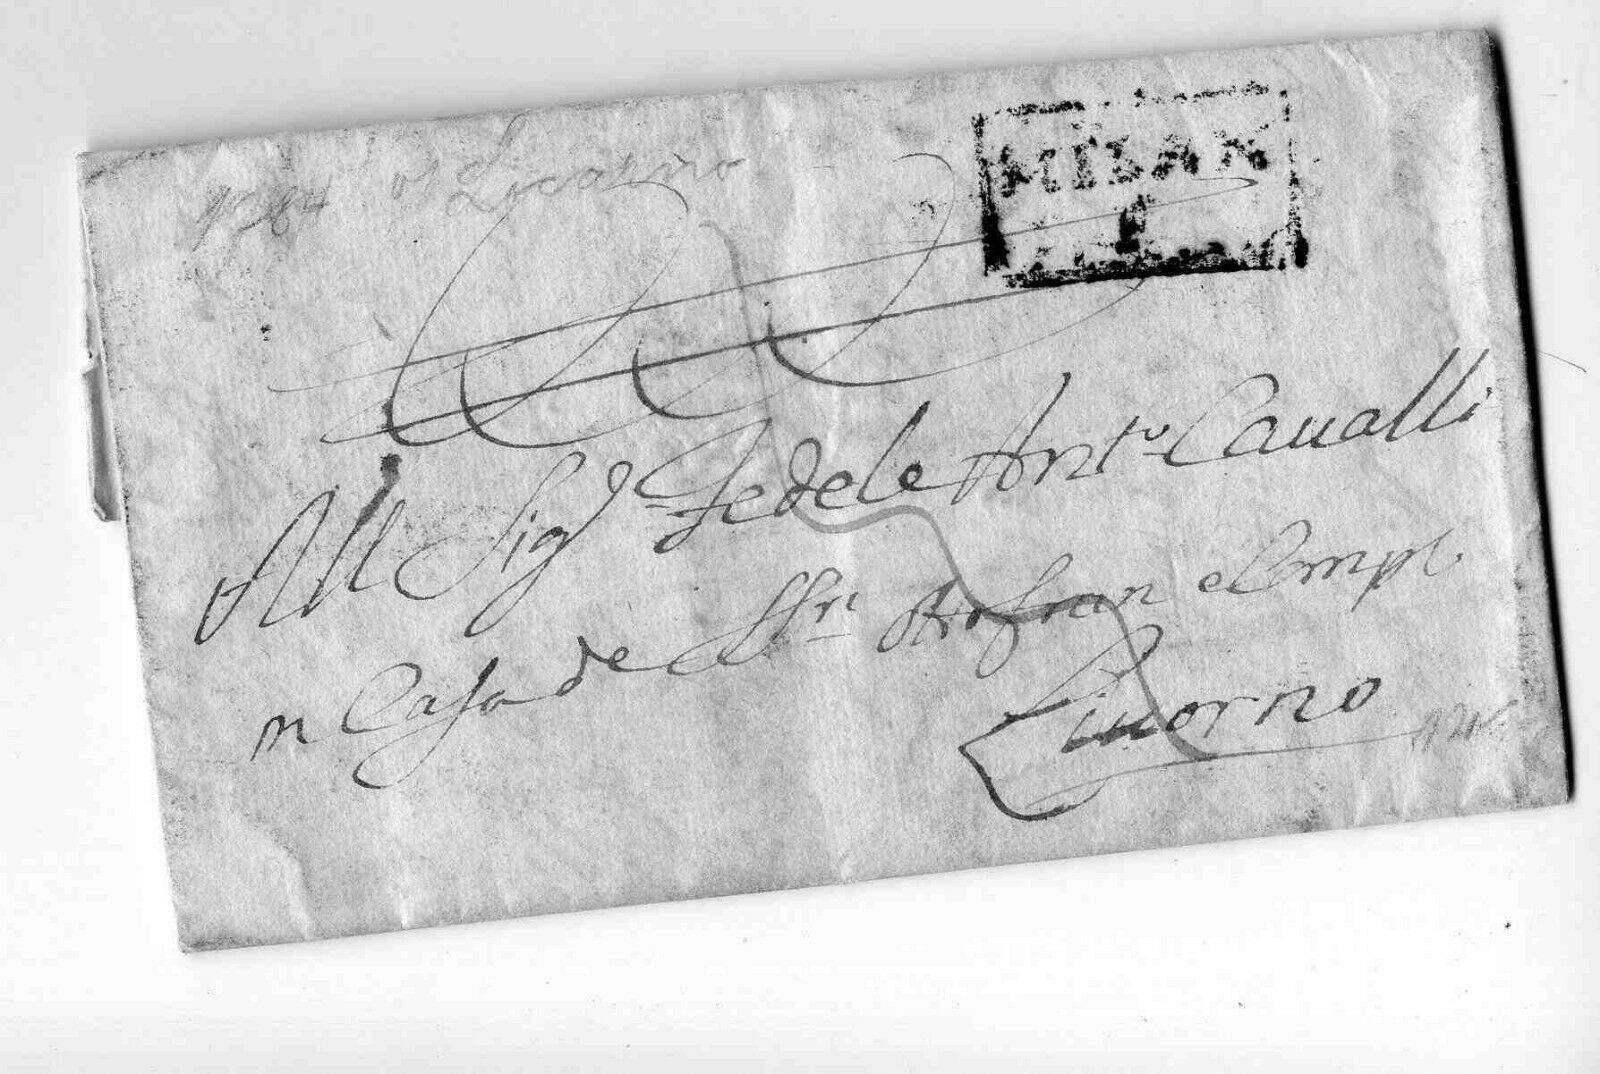 1784 Livorno
MILAN
L
All Sig.r Fedele Ant.o Caualli
in Casa de SSri e Comp.
Liuorno